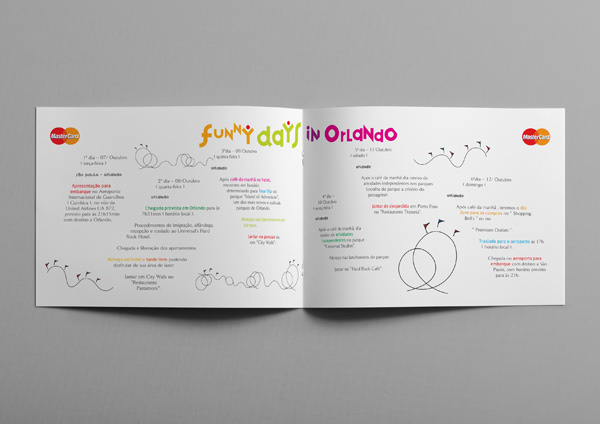 MasterCard
funny days in Orlando
MasterCard
1º dia – 07/ Outubro
( terça-feira )
são paulo – orlando
Apresentação para
embarque no Aeroporto
Internacional de Guarulhos
2º dia – 08 / Outubro
( quarta-feira )
orlando
Chegada prevista em Orlando para às
horário local ).
Procedimentos de imigração, alfândega,
recepção e traslado ao Universal's Hard
Rock Hotel.
Chegada e liberação dos apartamentos.
Almoço no hotel e tarde livre podendo
desfrutar de sua área de lazer
Jantar em City Walk no
"Restaurante
3º dia – 09/ Outubro
( quinta-feira )
orlando
Após café da manhã no hotel,
encontro em horário
determinado para
parque "Island of Adventure",
um dos mais novos e radicais
parques de Orlando.
Jantar no parque ou
no "City Walk".
4º dia – 10
/ Outubro
( sexta-feira )
orlando
Após o café da manhã, dia
todos de atividades
independentes no parque
"Universal Studios"
Almoço nas lanchonetes do parque.
Jantar no "Hard Rock Café"
5º dia – 11 Outubro
( sábado )
orlando
Após o café da manhã dia inteiro de
atividades independentes nos parques
( escolha do parque a critério do
passageiro).
Jantar de despedida em Porto Fino
no "Restaurante Trattoria"
6º dia – 12/ Outubro
( domingo )
orlando
Após café da manhã, teremos o dia
livre para as compras no " Shopping
" Premium Outlets "
Traslado para o aeroporto às 17h
( horário local ).
Chegada no aeroporto para
embarque com destino a São
Paulo, com horário previsto
para às 21h